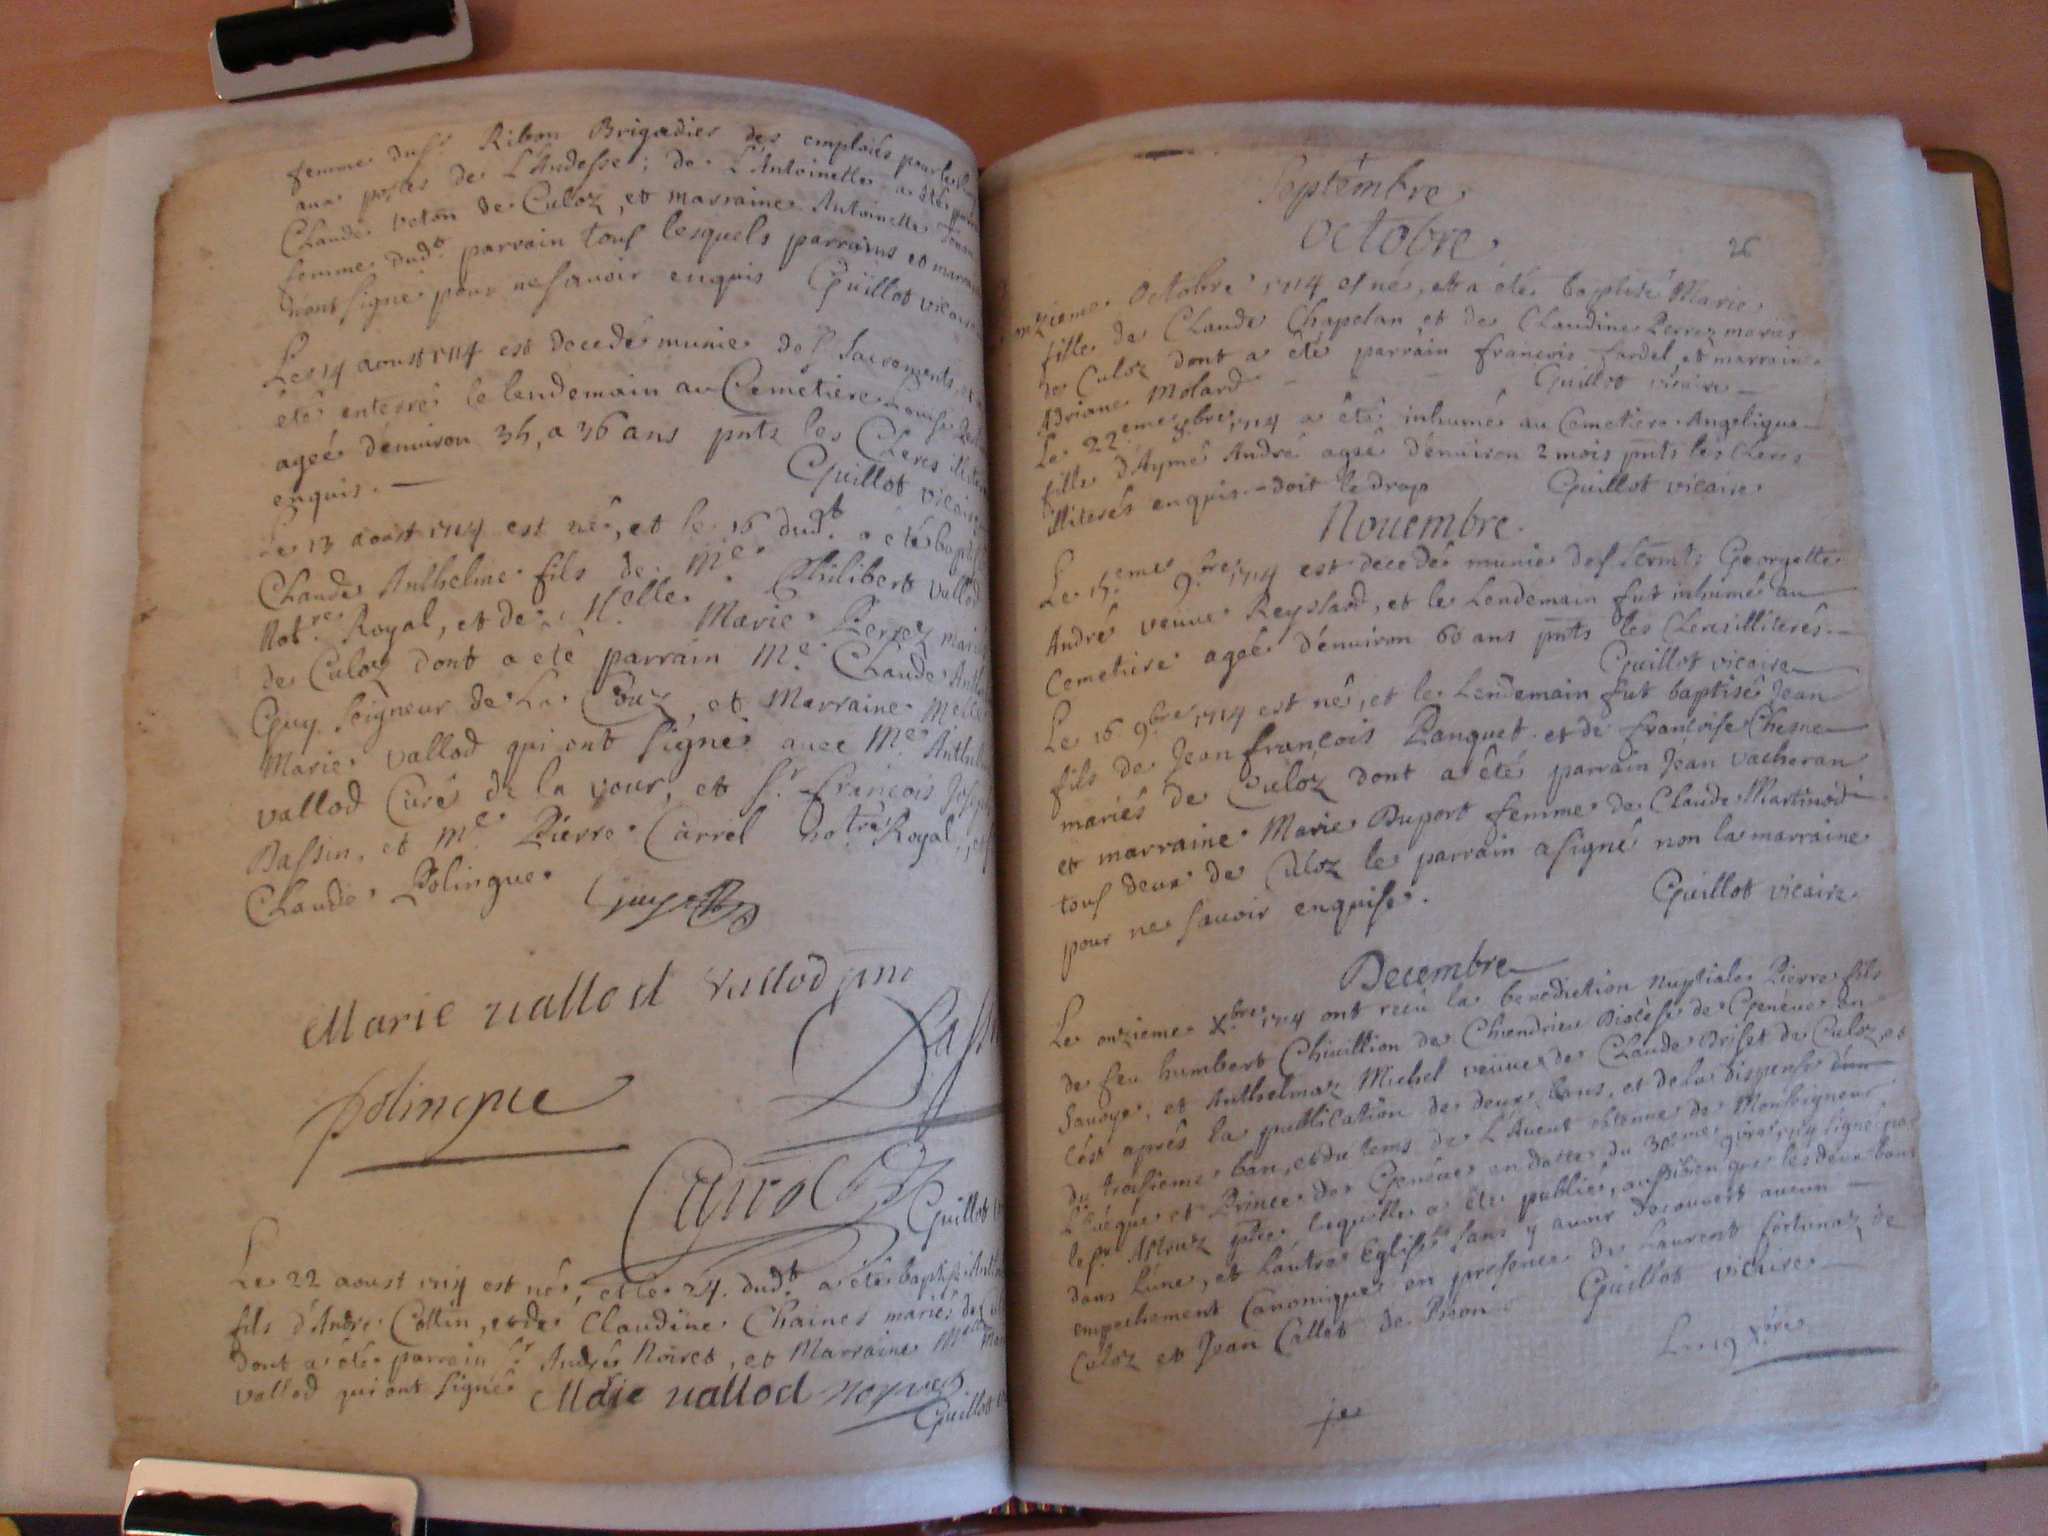 femme du Sr Ribon Brigadier des emplois pour les
aux postes de L'Andesse; de L'Antoinette a été
Claude veton de Culoz, et marraine Antoinette
femme dudt parrain tous lesquels parrains et
n'ont signé pour ne savoir enquis Guillot vicaire
Le 14 aoust 1714 est decedé munie des Sacrements, et
été enterré le lendemain au Cemetiere Louise
ageé d'environ 35, a 36 ans pnts les Clercs
enquis. Guillot vicaire
Le 13 aoust 1714 est né, et le 16 dudt a été
Claude Anthelme fils de Me Philibert vallod
Notre Royal, et de Melle Marie Perrez
de Culoz dont a eté parrain Me Claude
Guy Seigneur de La Couz, et Marraine Melle
Marie vallod qui ont signé avec Me
vallod Curé de la vour, et Sr François
Bassin, et Me Pierre Carrel notre Royal,
Claude Polingue
Guy
Marie vallod vallod
polingue
Carrel
Guillot
Le 22 aoust 1714 est né, et le 24 dudt a été baptisé
fils d'André Collin, et de Claudine Chaines mariés de
dont a été parrain Sr André Noiret, et Marraine Melle
vallod qui ont signé Marie vallod noyret
Guillot
Septembre.
Octobre.
26
onzieme Octobre 1714 est né, et a eté baptisé Marie
fille de Claude Chapelan et de Claudine Perrez mariés
de Culoz dont a été parrain françois fardel, et marraine
Adriane Molard Guillot vicaire
Le 22eme 8bre 1714 a été inhumé au Cemetiere Angelique
fille d'Aymé André ageé d'environ 2 mois pnts les Clercs
illiterés enquis - doit le drap Guillot vicaire
Novembre.
Le 15eme 9bre 1714 est decedée munie des Scrmts Georgette
André veuve Reyssard, et le Lendemain fut inhumé au
Cemetiere ageé d'environ 60 ans pnts les Clercs illiterés
Guillot vicaire
Le 16 9bre 1714 est né, et le Lendemain fut baptisé Jean
fils de Jean françois Panquet et de françoise Chesne
mariés de Culoz dont a été parrain Jean vacheran
et marraine Marie Duport femme de Claude Martinod
tous deux de Culoz le parrain a signé non la marraine
pour ne savoir enquise. Guillot vicaire.
Decembre
Le onzieme Xbre 1714 ont reçu la benediction nuptiale Pierre fils
de feu humbert Chivillion de Chiendrieu Diocèse de Genève en
Savoye, et Anthelmaz Michel veuve de Claude Briset de Culoz, et
c'est après la publication de deux bans, et de la dispense d'un
du troisieme ban, et du tems de L'Avent obtenue de Monseigneur
L'Evêque et Prince de Genève en datte du 30eme 9bre 1714 signé par
le Sr ptre, laquelle a été publié, aussi bien que les deux bans
dans L'une, et L'autre Eglise sans y avoir decouvert aucun
empechement Canonique en presence de Laurent fortunaz de
Culoz et Jean Callet de Guillot vicaire
Le 19 Xbre
je